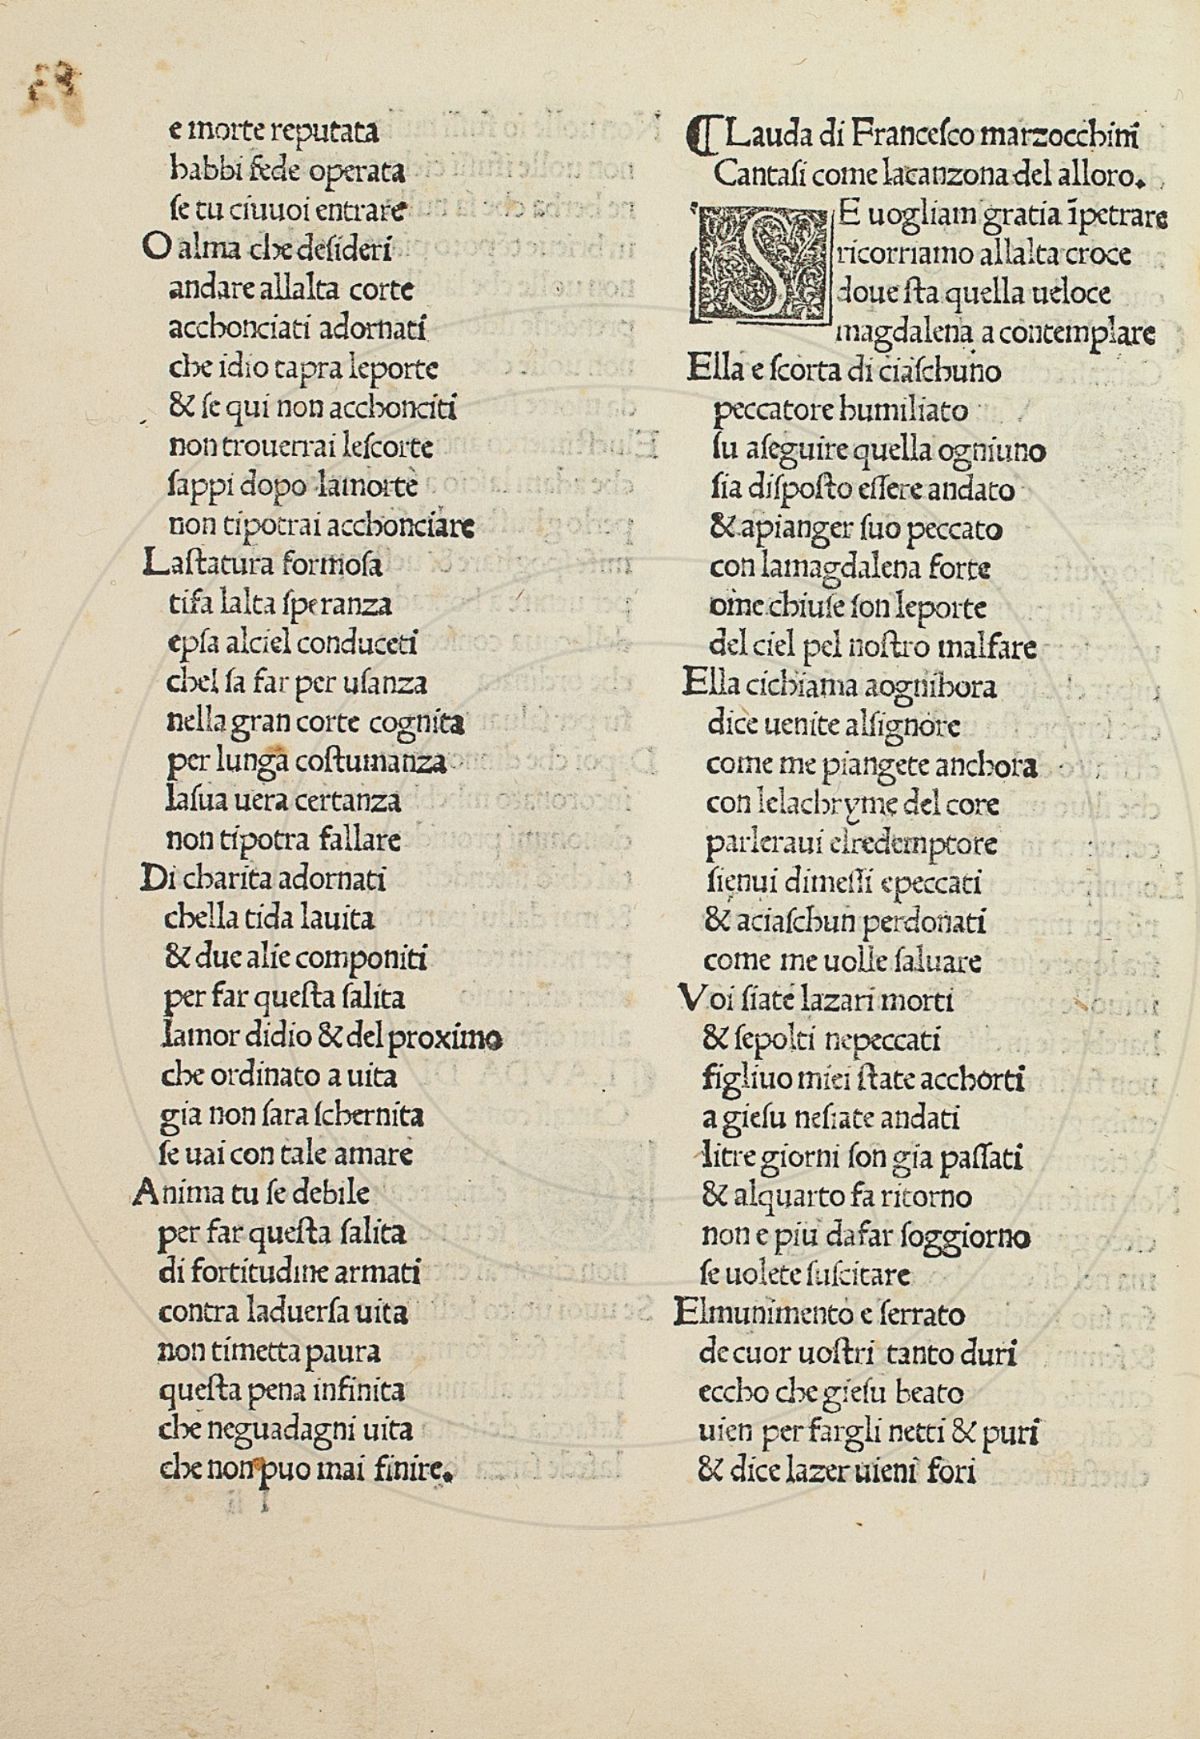 e morte reputata
habbi fede operata
se tu ciuuoi entrare
O alma che desideri
andare allalta corte
acchonciati adornati
che idio tapra leporte
& se qui non acchonciti
non trouerrai leſcorte
sappi dopo lamorte
non tipotrai acchonciare
Laſtatura formosa
tifa lalta ſperanza
epsa alciel conduceti
chel sa far per uſanza
nella gran corte cognita
per lunga coſtumanza
laſua uera certanza
non tipotra fallare
Di charita adornati
chella tida lauita
& due alie componiti
per far queſta ſalita
lamor didio & del proximo
che ordinato a uita
gia non ſara ſchernita
ſe uai con tale amare
Anima tu ſe debile
per far queſta ſalita
di fortitudine armati
contra laduerſa uita
non timetta paura
queſta pena infinita
che neguadagni uita
che non puo mai finire.
¶ Lauda di Franceſco marzocchini
Cantaſi come lacanzona del alloro.
SE uogliam gratia īpetrare
ricorriamo allalta croce
doue ſta quella ueloce
magdalena a contemplare
Ella e ſcorta di ciaſchuno
peccatore humiliato
ſu aſeguire quella ogniuno
ſia diſpoſto eſſere andato
& apianger ſuo peccato
con lamagdalena forte
ome chiuſe ſon leporte
del ciel pel noſtro malfare
Ella cichiama aognihora
dice uenite alſignore
come me piangete anchora
con lelachryme del core
parleraui elredemptore
ſienui dimeſſi epeccati
& aciaſchun perdonati
come me uolle ſaluare
Voi ſiate lazari morti
& ſepolti nepeccati
figliuo miei ſtate acchorti
a gieſu neſiate andati
litre giorni ſon gia paſſati
& alquarto fa ritorno
non e piu dafar ſoggiorno
ſe uolete ſuſcitare
Elmunimento e ſerrato
de cuor uoſtri tanto duri
eccho che gieſu beato
uien per fargli netti & puri
& dice lazer uieni fori